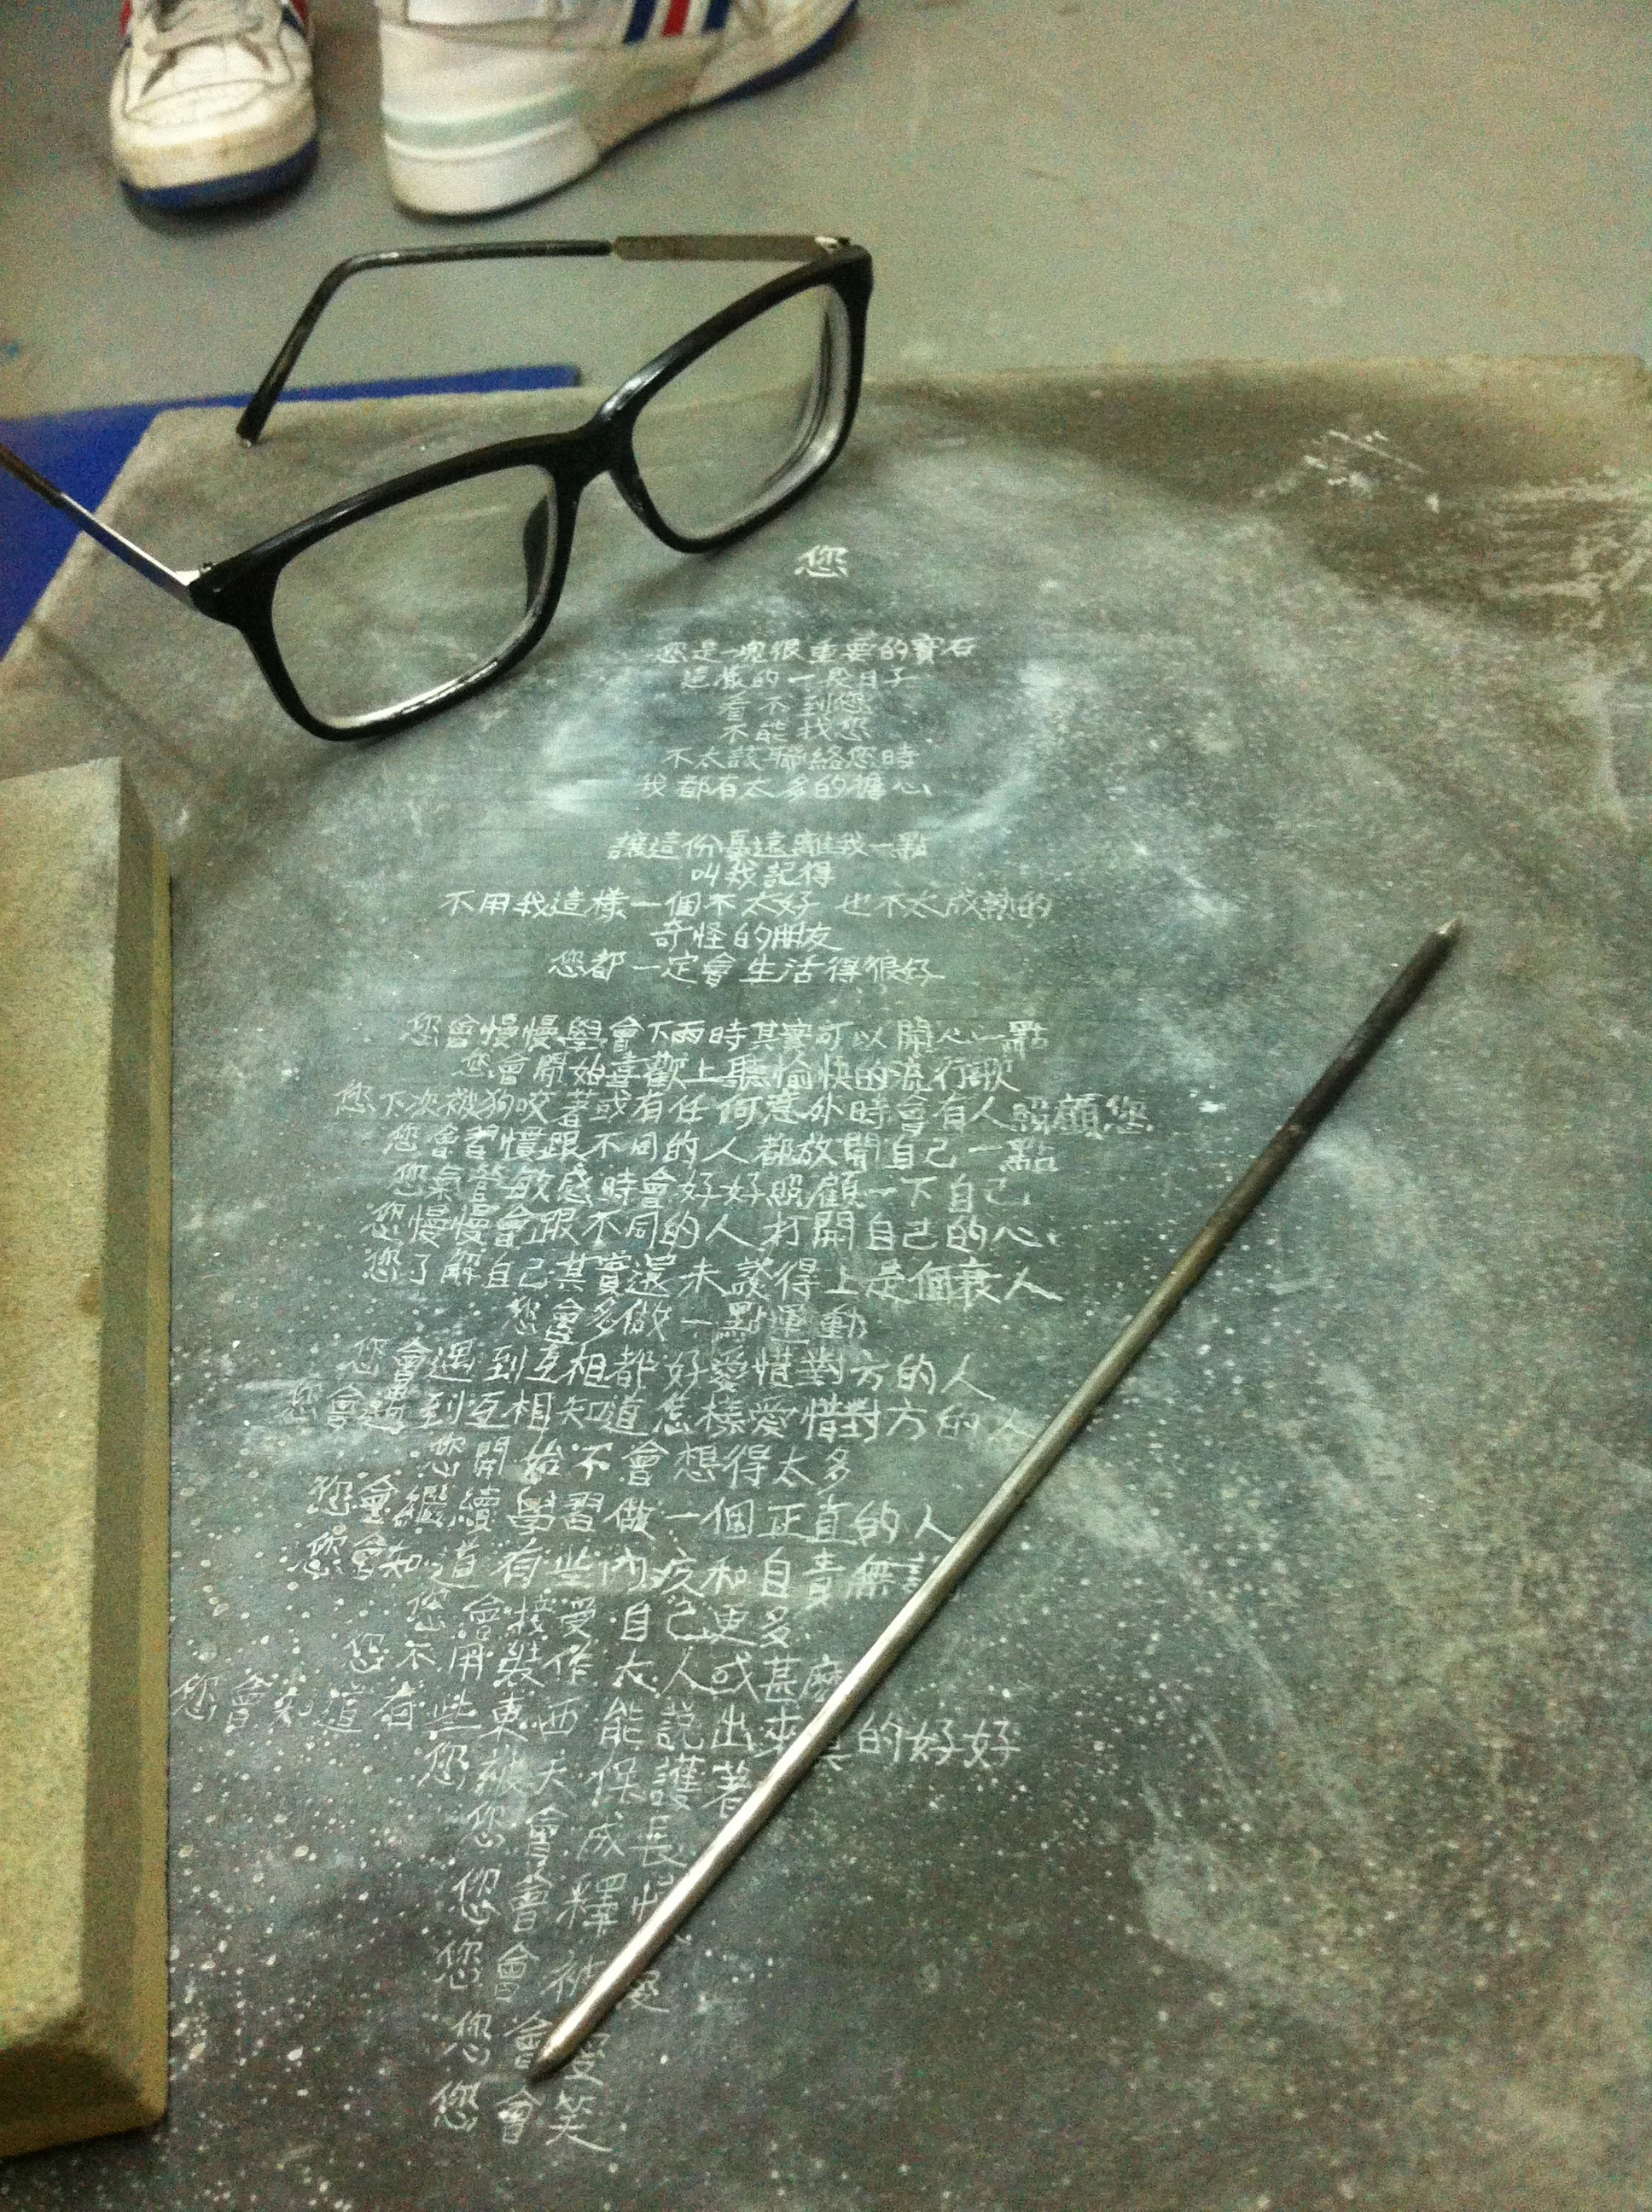 您
您是一塊很重要的寶石
這樣的一段日子
看不到您
不能找您
不太該聯絡您時
我都有太多的擔心
讓這份憂遠離我一點
叫我記得
不用我這樣一個不太好 也不太成熟的
奇怪的朋友
您都一定會生活得很好
您會慢慢學會下雨時其實可以開心一點
您會開始喜歡上聽愉快的流行歌
您下次被狗咬著或有任何意外時會有人照顧您
您會習慣跟不同的人都放開自己一點
您氣管敏感時會好好照顧一下自己
您慢慢會跟不同的人打開自己的心
您了解自己其實還未談得上是個衰人
您會多做一點運動
您會遇到互相都好愛惜對方的人
您會遇到互相知道怎樣愛惜對方的人
您開始不會想得太多
您會繼續學習做一個正直的人
您會知道有些內疚和自責無
您會接受自己更多
您不用裝作大人或甚麼
您會知道有些東西能說出來 的好好
您被天保護著
您會成長
您會釋
您會被愛
您會愛
您會笑